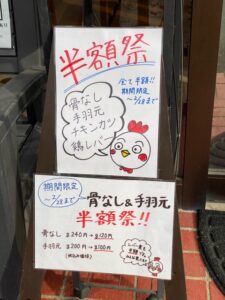 半額祭
全て半額!!
期間限定
〜2/28まで
骨なし
手羽元
チキンカツ
鶏レバー
期間限定
〜2/28まで
骨なし&手羽元
半額祭!!
骨なし ¥240円→¥120円
手羽元 ¥200円→¥100円
(税込み価格)
レバー煮も